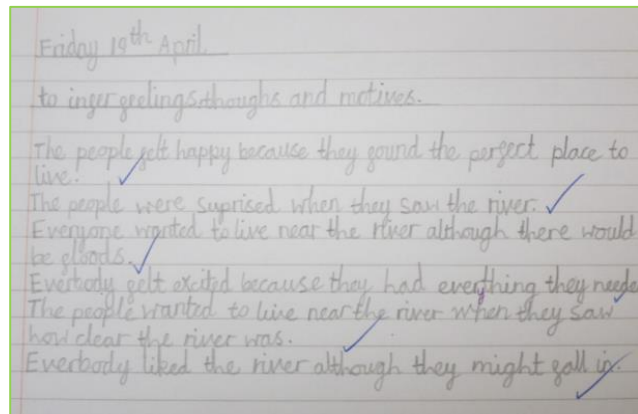 Friday 19th April
to infer feelings, thoughs and motives.
The people felt happy because they found the perfect place to
live.
The people were suprised when they saw the river.
Everyone wanted to live near the river although there would
be floods.
Everbody felt excited because they had everything they neede
The people wanted to live near the river when they saw
how clear the river was.
Everbody liked the river although they might fall in.